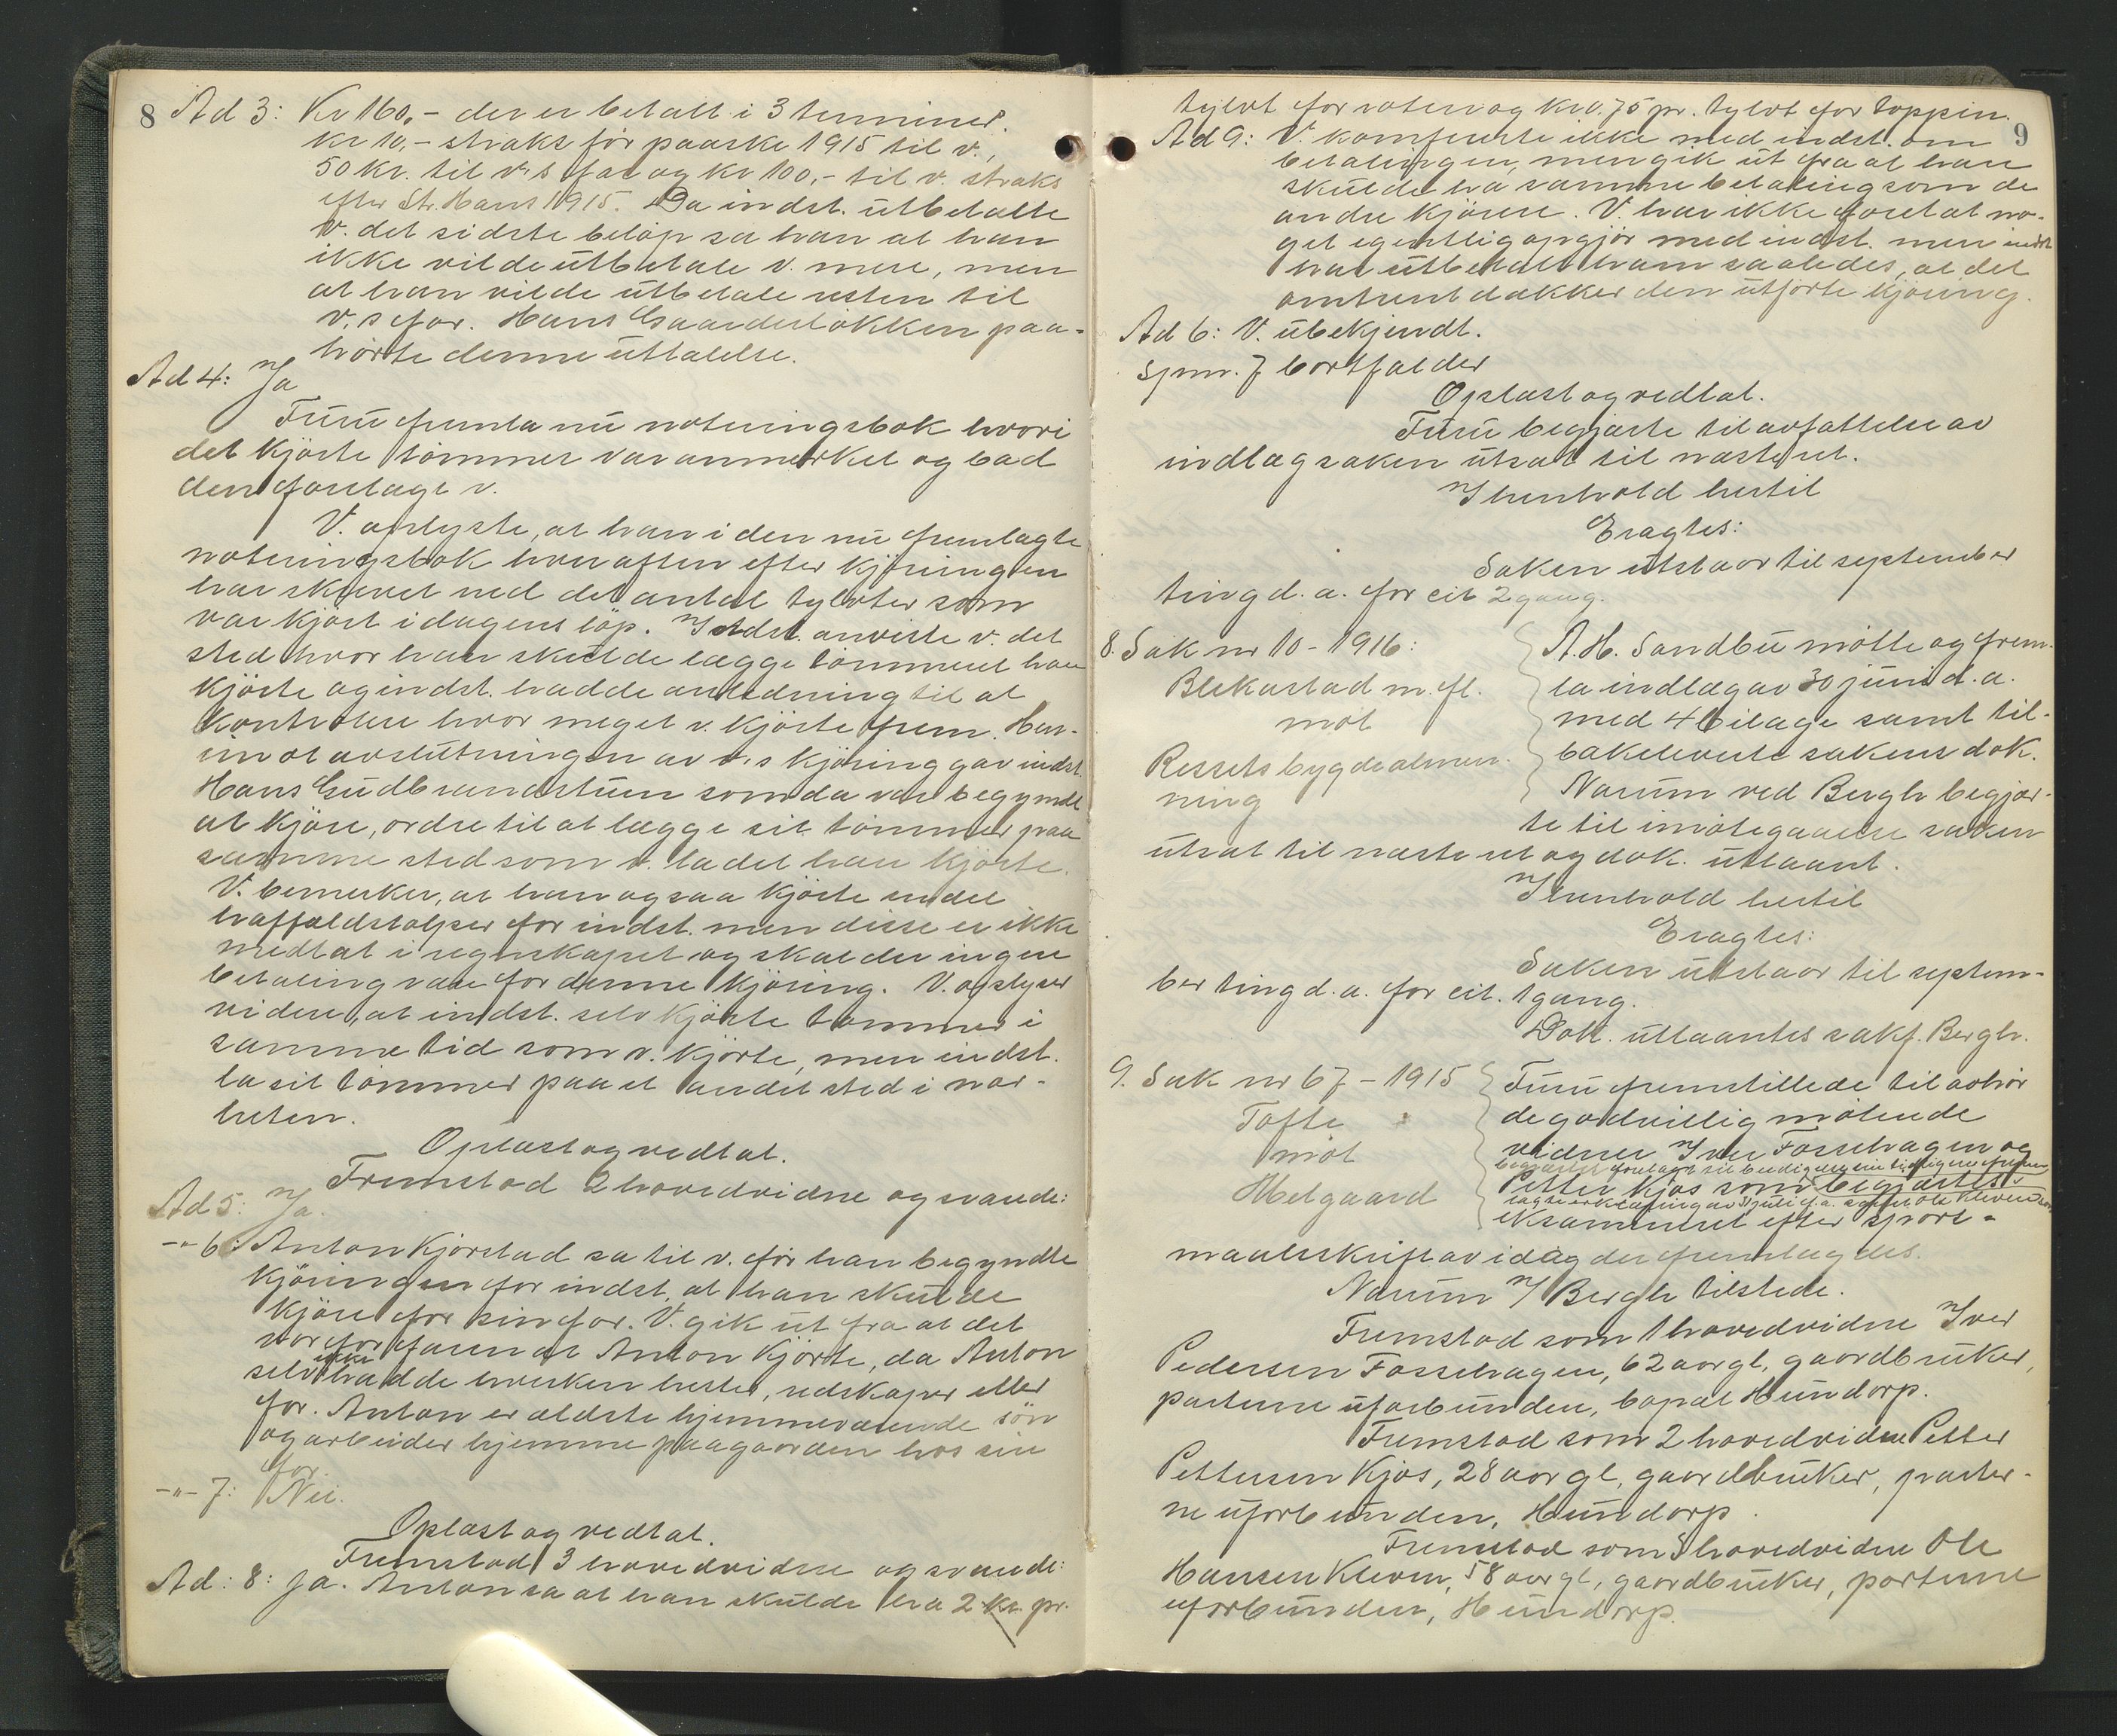 8
Ad 3: Kr 160,- der er betalt i 3 terminer.
kr 10,- straks før paaske 1915 til v.,
50 kr. til v.s far og kr 100,- til v. straks
efter St. Hans 1915. Da indst. utbetalte
v. det sidste beløp sa han at han
ikke vilde utbetale v. mere, men
at han vilde utbetale resten til
v.s far. Hans Gaarderløkken paa-
hørte denne uttalelse.
Ad 4: Ja
Furu fremla nu noteringsbok hvori
det kjørte tømmer var anmerket og bad
den forelagt v.
V. oplyste, at han i den nu fremlagte
noteringsbok hver aften efter kjøringen
har skrevet ned det antal tylvter som
var kjørt i dagens løp. Indst. anviste v. det
sted hvor han skulde lægge tømmeret han
kjørte og indst. hadde anledning til at
kontrollere hvor meget v. kjørte frem. Hen-
imot avslutningen av v.s kjøring gav indst.
Hans Gudbrandstuen som da var begyndt
at kjøre, ordre til at lægge sit tømmer paa
samme sted som v. la det han kjørte.
V. bemerker, at han ogsaa kjørte endel
haffældstolper for indst. men disse er ikke
medtat i regnskapet og skal der ingen
betaling være for denne kjøring. V. oplyser
videre, at indst. selv kjørte tømmer i
samme tid som v. kjørte, men indst.
la sit tømmer paa et andet sted i nær-
heten.
Oplæst og vedtat.
Fremstod 2 hovedvidne og svarede:
Ad 5: Ja.
-"- 6: Anton Kjørstad sa til v. før han begyndte
kjøringen for indst. at han skulde
kjøre for sin far. V. gik ut fra at det
var for faren at Anton kjørte, da Anton
selv ikke hadde hverken hester, redskaper eller
for. Anton er ældste hjemmeværende søn
og arbeider hjemme paa gaarden hos sin
far.
-"- 7: Nei.
Oplæst og vedtat.
Fremstod 3 hovedvidne og svarede:
Ad: 8: Ja. Anton sa at han skulde ha 2 kr. pr.
9
tylvt for roten og kr 0.75 pr. tylvt for toppen.
Ad 9: V. konfererte ikke med indst. om
betalingen, men gik ut fra at han
skulde ha samme betaling som de
andre kjørere. V. har ikke foretat no-
get egentlig opgjør med indst. men indst
har utbetalt ham saaledes, at det
omtrent dækker den utførte kjøring.
Ad 6: V. ubekjendt.
Spm. 7 bortfalder
Oplæst og vedtat.
Furu begjærte til avfattelse av
indlæg saken utsat til næste ret.
I henhold hertil
Eragtes:
Saken utstaar til september
ting d.a. for cit 2 gang.
8. Sak nr 10 - 1916:
Blekastad m. fl.
mot
Ressets bygdealmen-
ning
A. H. Sandbu møtte og frem-
la indlæg av 30 juni d. a.
med 4 bilage samt til-
bakeleverte sakens dok.
Narum ved Bergh begjær-
te til imøtegaaelse saken
utsat til næste ret og dok. utlaant.
I henhold hertil
Eragtes:
Saken utstaar til septem-
ber ting d. a. for cit. 1 gang.
Dok. utlaantes sakf. Bergh.
9. Sak nr 67 - 1915
Tofte
mot
Helgaard
Furu fremstillede til avhør
de godvillig møtende
vidner Iver Fossehagen og
begjærtes forelagt til beedigelse sin tidligere frem-
Petter Kjos som begjærtes
lagte erklæring av juli f.a. samt Ole Kleven som
eksaminert efter spørs-
maalsskrift av idag der fremlagdes.
Narum v/ Bergh tilstede.
Fremstod som 1 hovedvidne Iver
Pedersen Fossehagen, 62 aar gl, gaardbruker,
parterne uforbunden, bopæl Hundorp.
Fremstod som 2 hovedvidne Petter
Pettersen Kjos, 28 aar gl, gaardbruker, parter-
ne uforbunden, Hundorp.
Fremstod som 3 hovedvidne Ole
Hansen Kleven, 58 aar gl, gaardbruker, parterne
uforbunden, Hundorp.